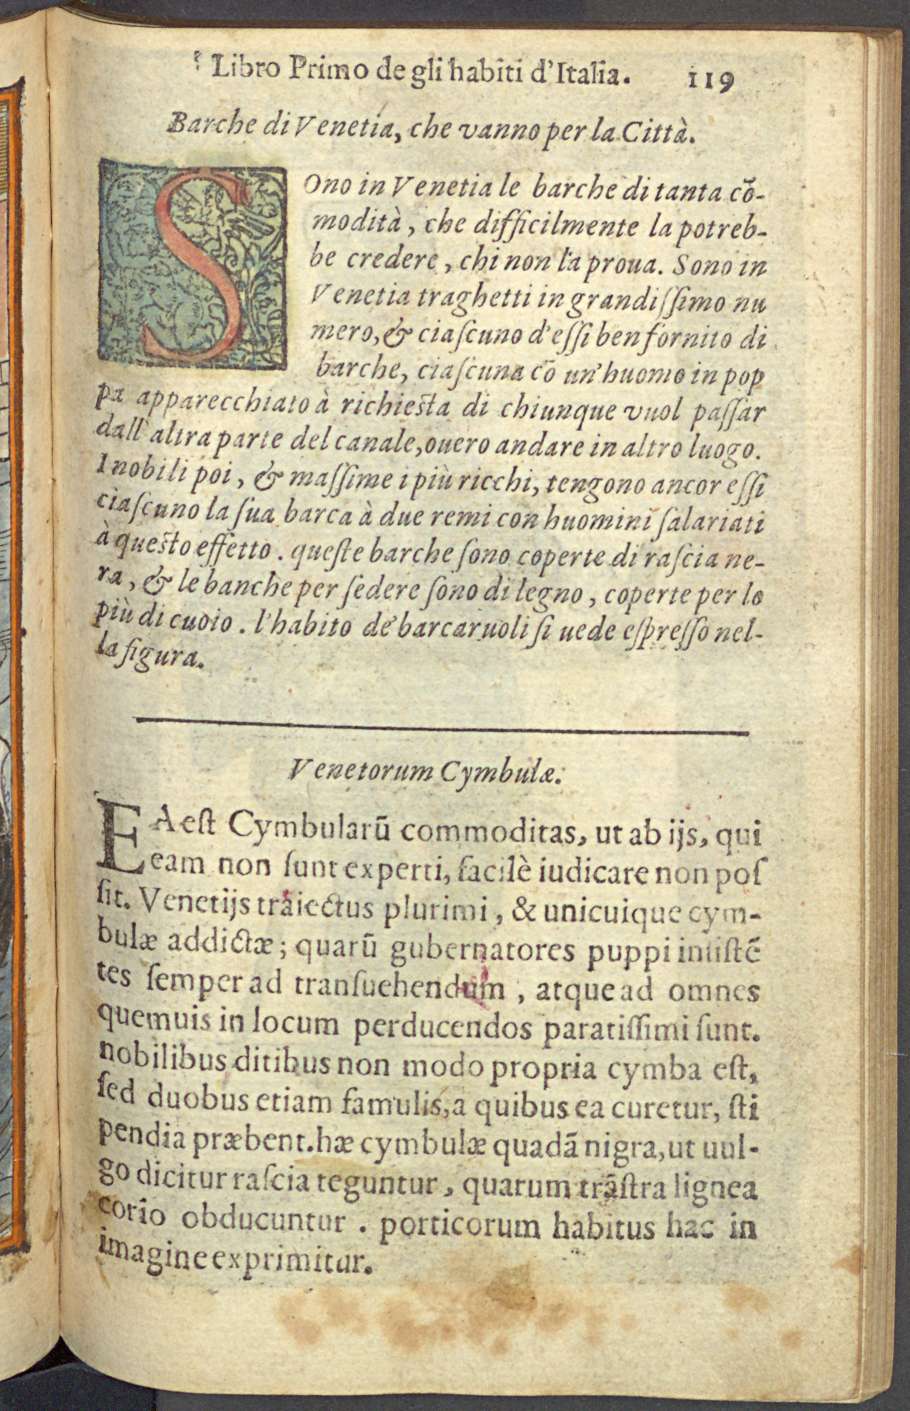 Libro Primo de gli habiti d'Italia. 119
Barche di Venetia, che vanno per la Città.
SOno in Venetia le barche di tanta cõ-
modità, che difficilmente la potreb-
be credere, chi non l'a proua. Sono in
Venetia traghetti in grandiſſimo nu
mero, & ciaſcuno d'eſſi ben fornito di
barche, ciaſcuna cō un'huomo in pop
pa apparecchiato à richieſta di chiunque vuol paſſar
dall'altra parte del canale, ouero andare in altro luogo.
I nobili poi, & maſſime i più ricchi, tengono ancor eſſi
ciaſcuno la ſua barca à due remi con huomini ſalariati
à queſto effetto. queſte barche ſono coperte di raſcia ne-
ra, & le banche per ſedere ſono di legno, coperte per lo
più di cuoio. l'habito de' barcaruoli ſi uede eſpreſſo nel-
la figura.
Venetorum Cymbulæ.
EA eſt Cymbularū commoditas, ut ab ijs, qui
eam non ſunt experti, facilè iudicare non poſ
ſit. Venetijs traiectus plurimi, & unicuique cym-
bulæ addictæ; quarū gubernatores puppi inſiſtẽ
tes ſemper ad tranſuehendum, atque ad omnes
quemuis in locum perducendos paratiſſimi ſunt.
nobilibus ditibus non modo propria cymba eſt,
ſed duobus etiam famulis, a quibus ea curetur, ſti
pendia præbent. hæ cymbulæ quadā nigra, ut uul-
go dicitur raſcia teguntur, quarum trāſtra lignea
corio obducuntur. porticorum habitus hac in
imagine exprimitur.